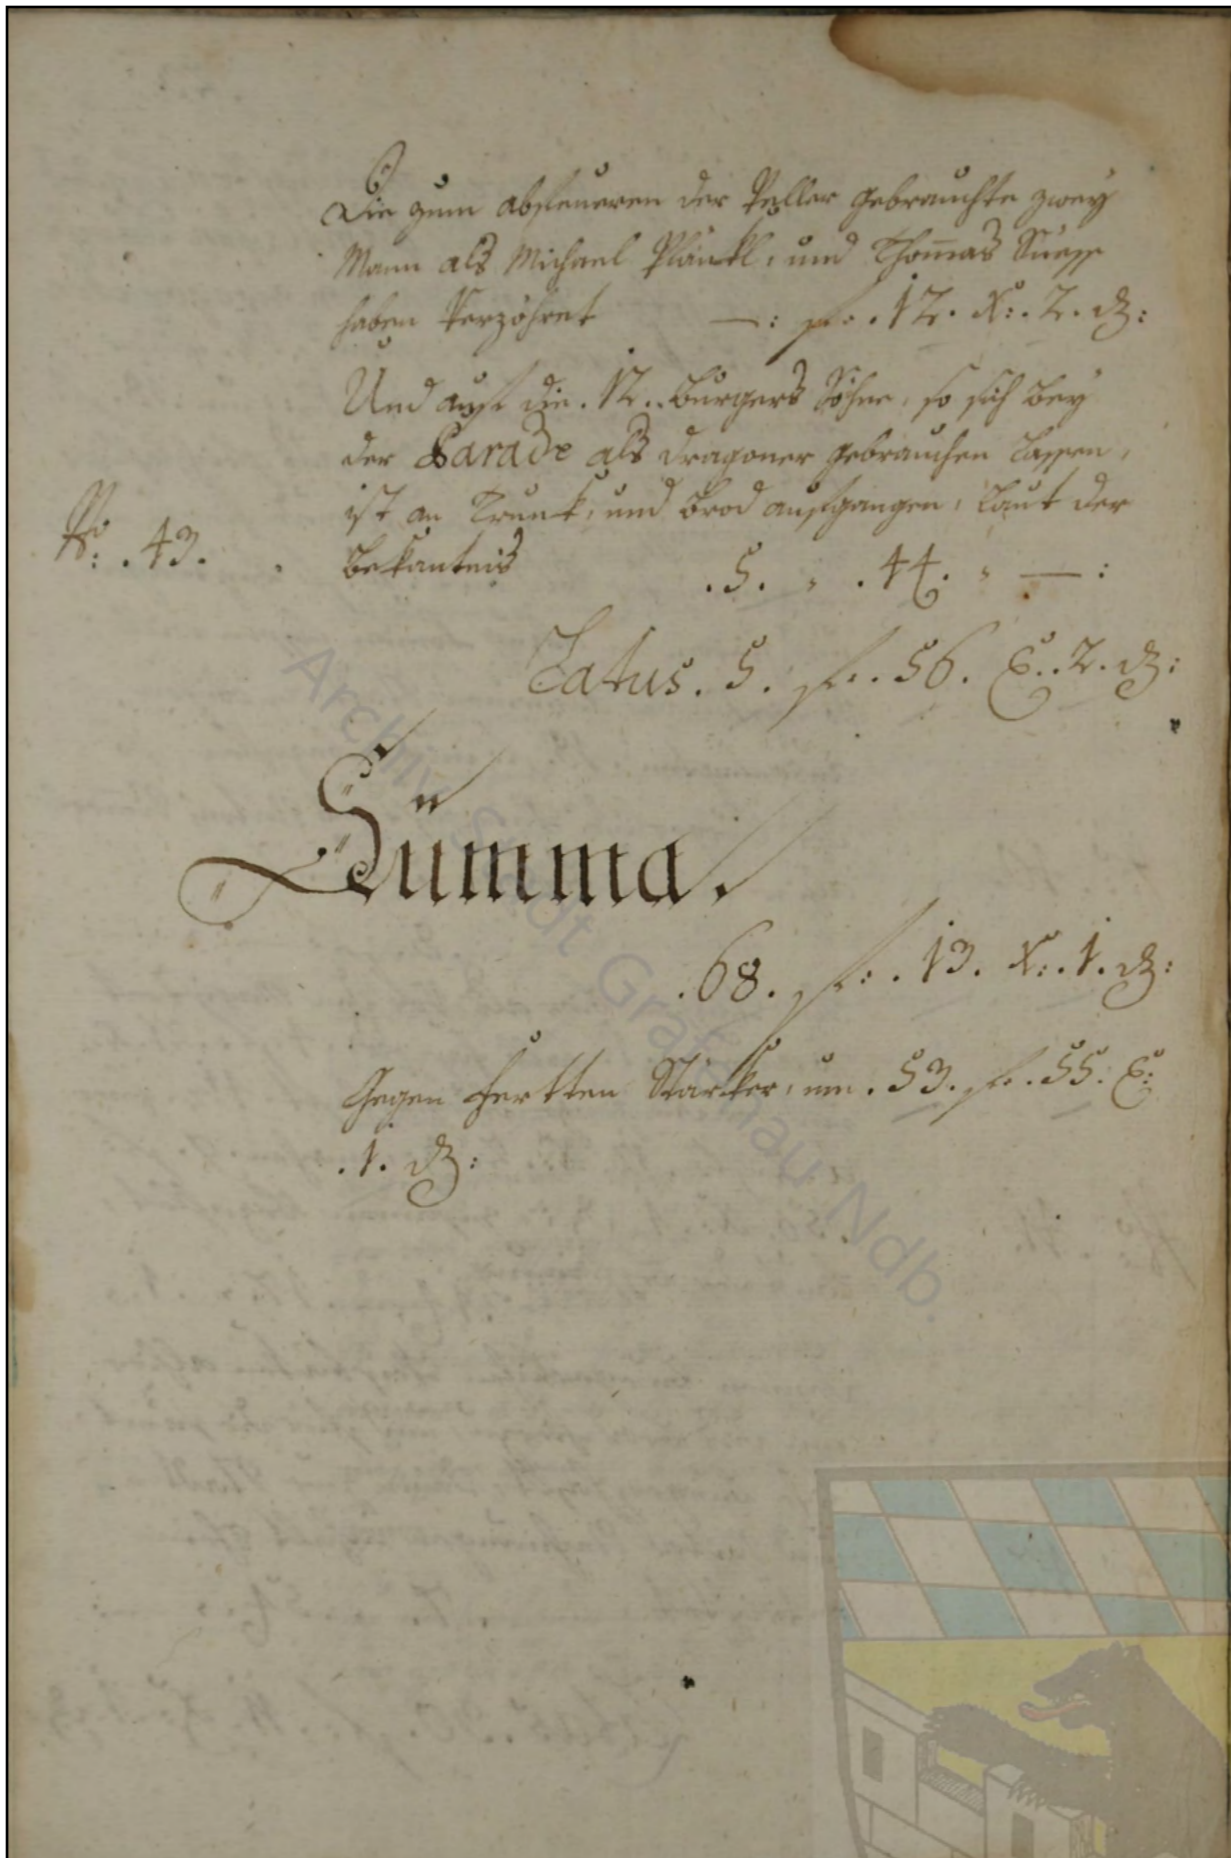 Die zum abfeueren der Peller gebrauchte zwey
Mann als Michael Plänkl, und Thom̅as Suess
haben verzöhret —: fl: .12. x: .2. d:
Und auf die .12. burgers Söhne, so sich bey
der Parade als dragoner gebrauchen lassen,
ist an Trunk, und brod aufgangen, laut der
No: .43. bekantnis .5. " .44. " —:
Latus. 5. fl: .56. x: .2. d:
Summa.
.68. fl: .13. x: .1. d:
Gegen ferten Stärker, um .53. fl: .55. x:
.1. d:
Archiv Stadt Grafenau Ndb.